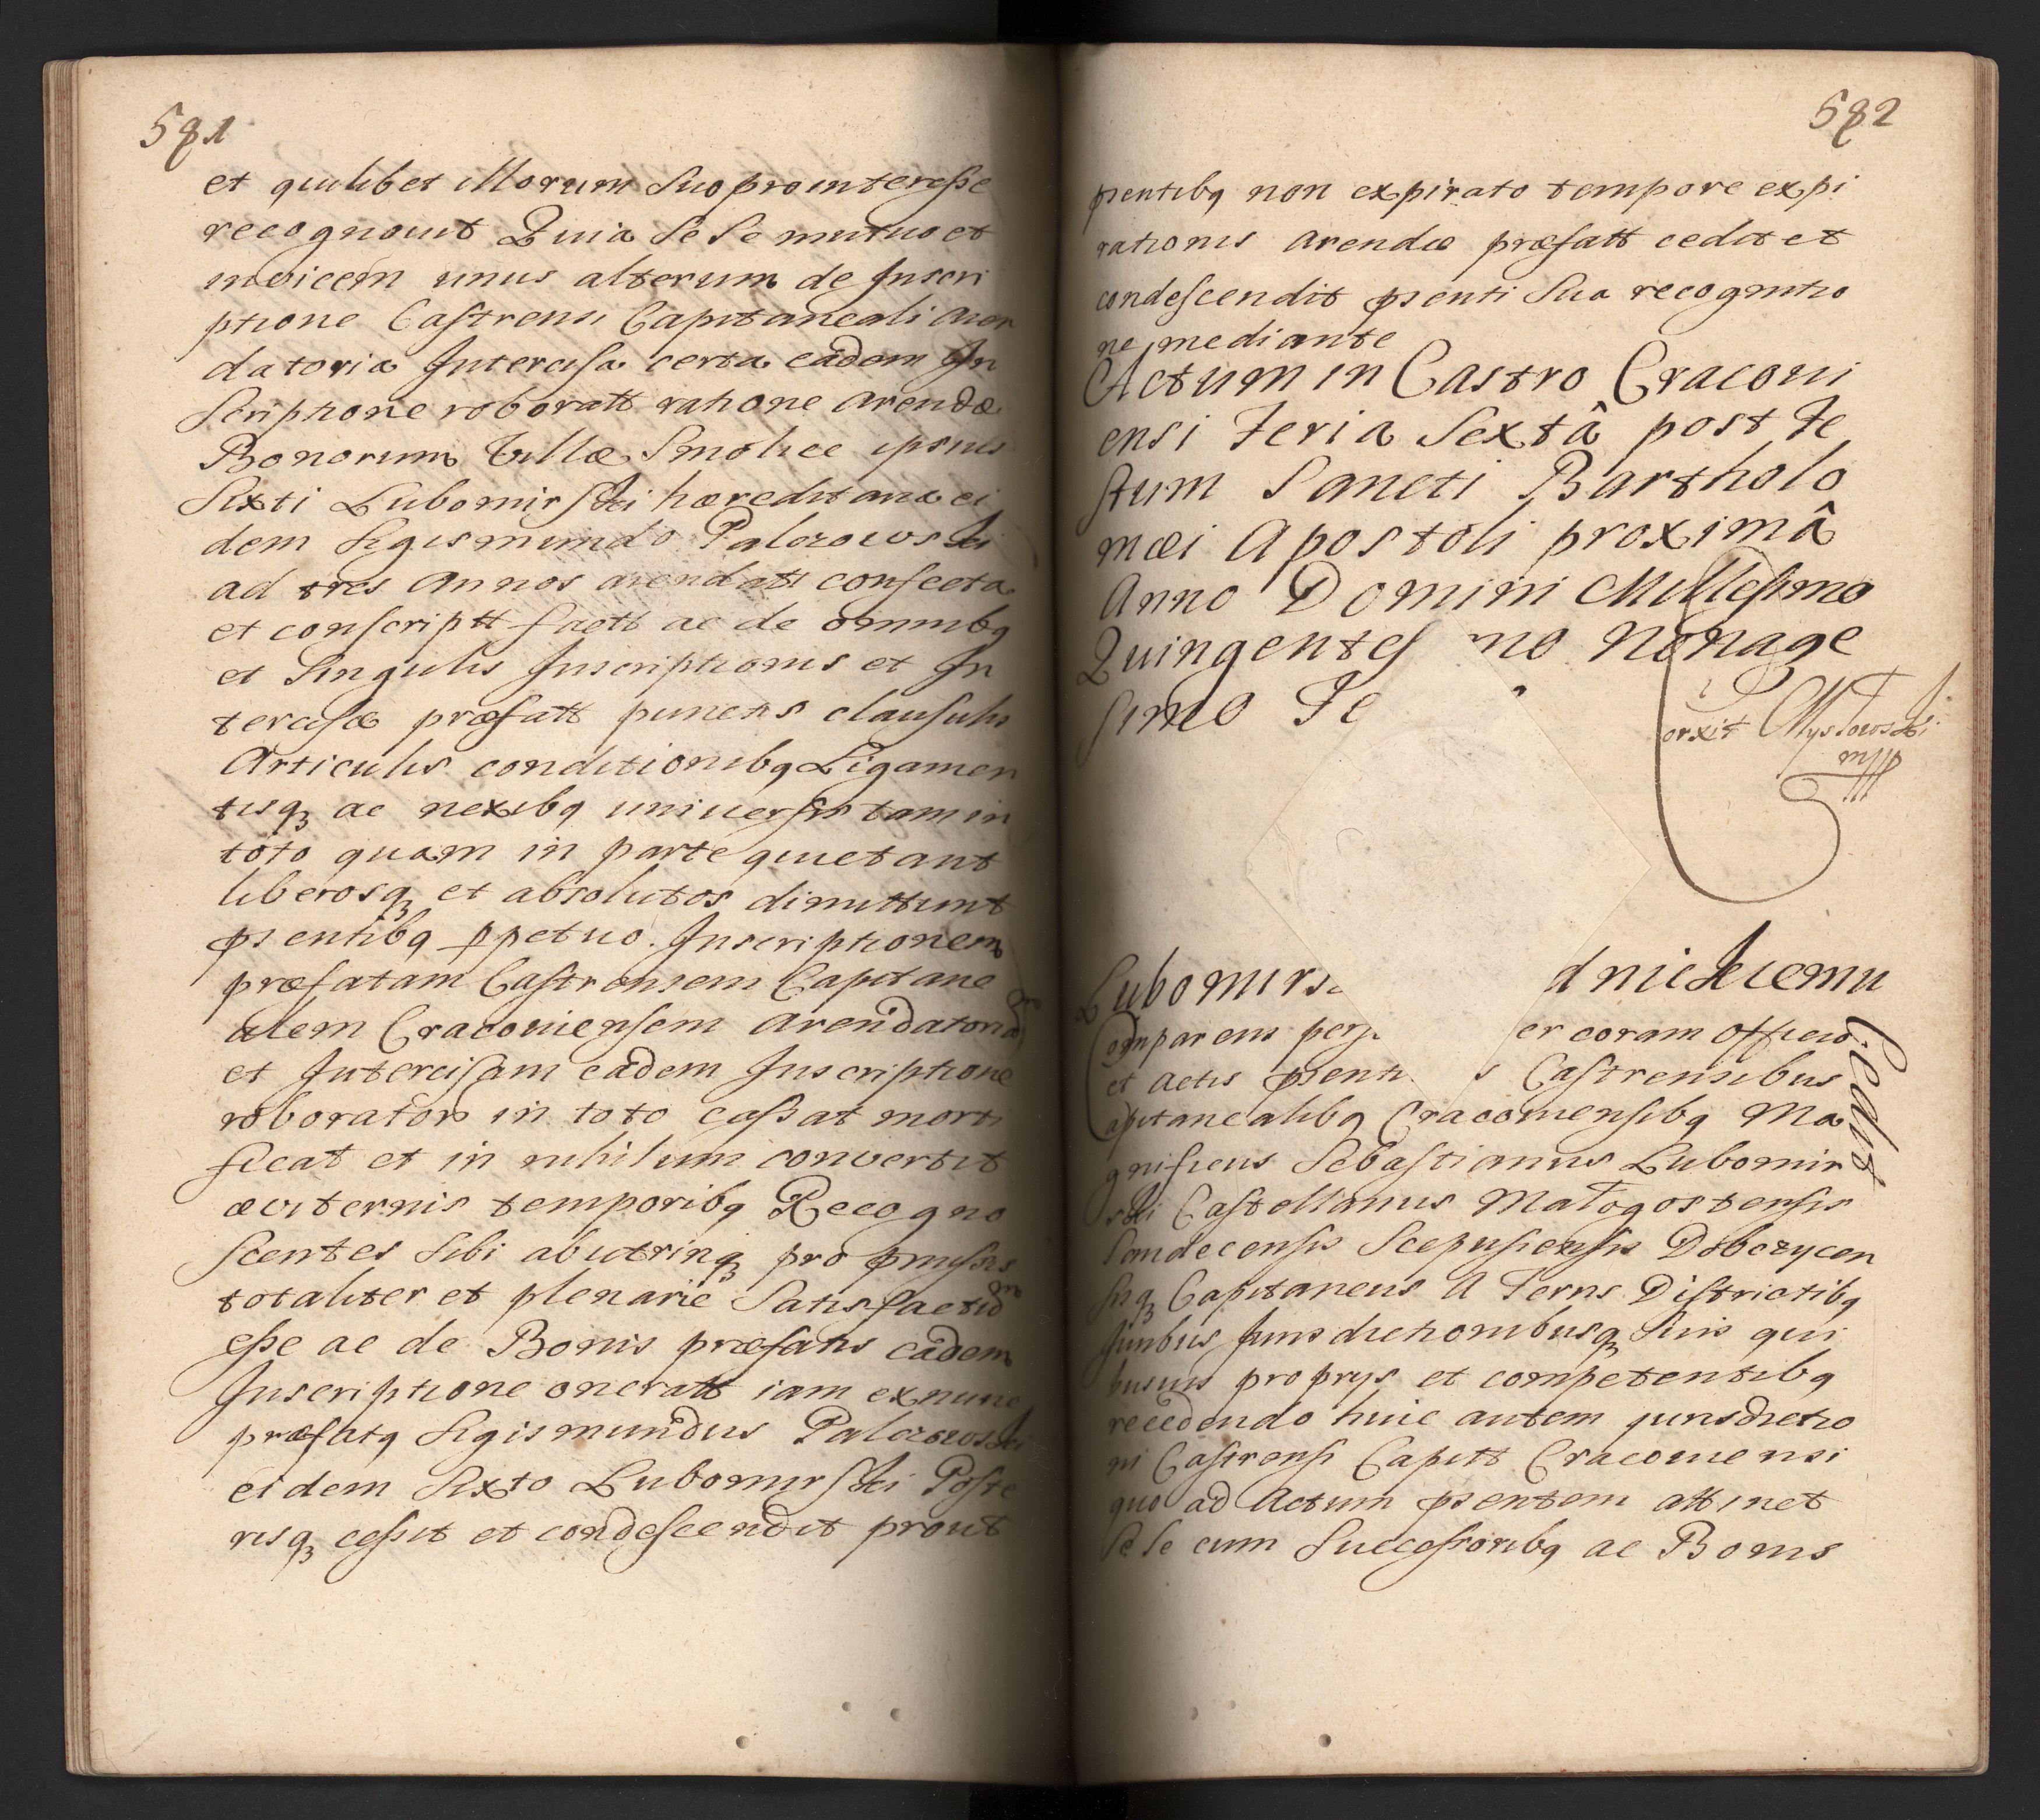 581
et quilibet illorum Suo prointereße
recognouit Quia Se Se mutuo et
inuicem unus alterum de Inscri
ptione Castrensi Capitaneali Aren
datoria Intercisa certa eadem In
Scriptione roboratt ratione arendæ
Bonorum Villæ Smolice ipsius
Sixti Lubomirski hæreditariæ ei
dem Sigismundo Palczowski
ad tres Annos arendatt confecta
et conscriptt factt ac de omnibq
et Singulis Inscriptionis et In
tercisæ præfatt punctis clausulis
Articulis conditionibq Ligamen
tisqȝ ac nexibq uniuersis tam in
toto quam in parte quietant
liberosqȝ et absolutos dimittunt
pntibq ppetuo. Inscriptionem
præfatam Castrensem Capitane
alem Cracouiensem Arendatoriā
et Intercisam eadem Inscriptione
roborator in toto caßat morti
ficat et in nihilum convertit
æviternis temporibq Recogno
Scentes Sibi abutrinqȝ pro pmissis
totaliter et plenariè Satisfactū
eße ac de Bonis præfatis eadem
Inscriptione oneratt iam ex nunc
præfatq Sigismundus Palczowski
eidem Sixto Lubomirski Poste
risqȝ ceßit et condescendit prout
582
psentibq non expirato tempore expi
rationis arendæ præfatt cedit et
condescendit psenti Sua recognitio
ne mediante
Actum in Castro Cracoui
ensi Feria Sextâ post Fe
stum Sancti Bartholo
mæi Apostoli proximâ
Anno Domini Millesimo
Quingentes mo Nonage
simo Se
orxit Mysłowski
mpp
Lubomirs dnickiemu
Comparens pers er coram officio
et Actis psenti s Castrensibus
Capitanealibq Cracouiensibq Ma
gnificus Sebastianus Lubomir
ski Castellanus Małogostensis
Sandecensis Scepusiensis Dobczycen
sisqȝ Capitaneus A Terris Districtibq
Iuribus Iurisdictionibusqȝ Suis qui
busuis proprys et competentibq
recedendo huic autem iurisdictio
ni Castrensi Capitt Cracouiensi
quo ad Actum psentem attinet
Se Se cum Succeßoribq ac Bonis
Cedit